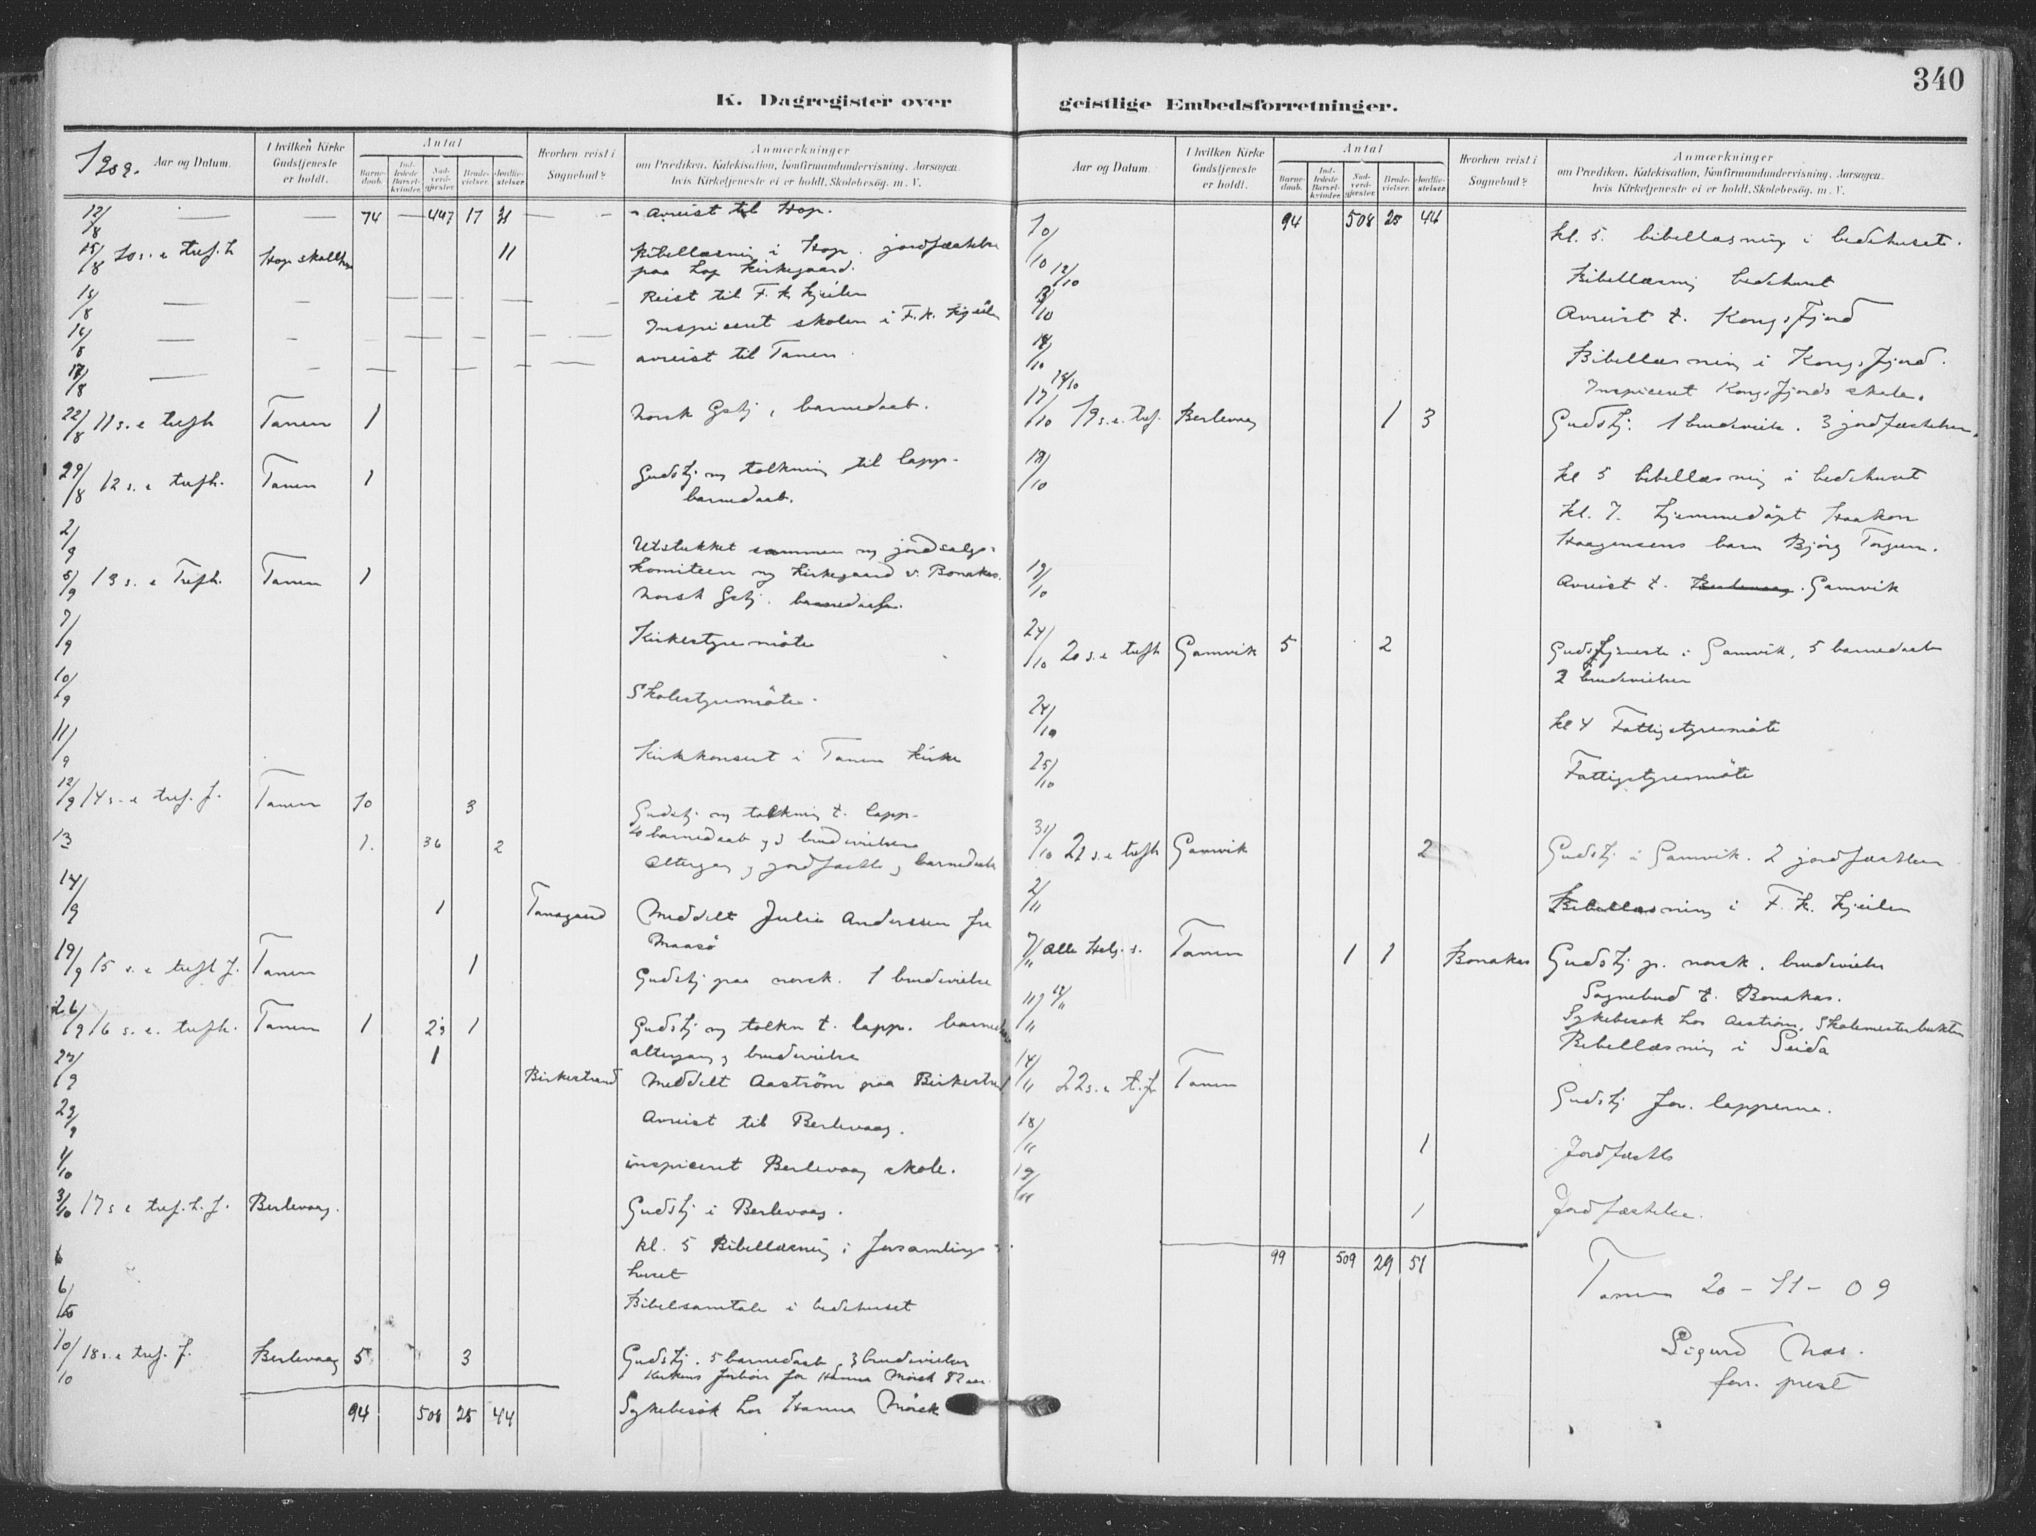 340
K. Dagregister over
1909.
Aar og Datum.
I hvilken Kirke Gudstjeneste er holdt.
Antal
Barnedaab.
Indledede Barselkvinder.
Nadverdgjester.
Brudevielser.
Jordfæstelser.
Hvorhen reist i Sognebud?
Anmærkninger
om Prædiken, Katekisation, Konfirmandundervisning, Aarsagen,
hvis Kirketjeneste ei er holdt, Skolebesøg, m. V.
12/8 74 447 17 31 Avreist til Hop.
15/8 10 s. e tref. h Hop 11 Bibellæsning i Hop. jordfæstelse
paa Hop kirkegaard.
15/8 Reist til F. k. kjeilen
16/8 Inspiceret skolen i F. k. kjeilen
17/8 avreist til Tanen.
22/8 11 s. e trefh Tanen 1 norsk Gstj, barnedaab.
29/8 12 s. e trefh. Tanen 1 Gudstj. og tolkning til lapp-
barnedaab.
2/9 Utstukket sammen og jordsalgs-
5/9 13 s. e Trefh. Tanen 1 komiteen ny kirkegaard v. Bonakas.
norsk Gstj. barnedaab.
7/9 Kirkestyremöte
10/9 Skolestyremöte.
11/9 Kirkkonsert i Tanen kirke
12/9 14 s. e tref. f. Tanen 10 3 Gudstj. og tolkning t. lapp-
10 barnedaab og 3 brudevielser
13 1. 36 2 Altergang, jordfæstelse, barnedaab
14/9 1 Tanagaard Meddelt Julie Anderssen fra
Maasö
19/9 15 s. e trefh f. Tanen 1 Gudstj paa norsk. 1 brudevielse
26/9 16 s. e. trefh. Tanen 1 23 1 Gudstj og tolkn t. lapp. barnedaab
altergang, brudevielse
27/9 1 Birkestrand Meddelt Aaström paa Birkestrand
29/9 Avreist til Berlevaag.
1/10 inspiceret Berlevaag skole.
3/10 17 s e tref. h. f. Berlevaag. Gudstj i Berlevaag.
kl. 5 Bibellæsning i forsamlings-
huset
6/10 Bibelsamtale i bedehuset
10/10 18 s. e tref. f. Berlevaag 5 3 Gudstj. 5 barnedaab 3 brudevielser
Kirkens forbön for Hanna Mörck
94 508 25 44 Sykebesök hos Hanna Mörck
geistlige Embedsforretninger.
Aar og Datum.
I hvilken Kirke Gudstjeneste er holdt.
Antal
Barnedaab.
Indledede Barselkvinder.
Nadverdgjester.
Brudevielser.
Jordfæstelser.
Hvorhen reist i Sognebud?
Anmærkninger
om Prædiken, Katekisation, Konfirmandundervisning, Aarsagen,
hvis Kirketjeneste ei er holdt, Skolebesøg, m. V.
10/10 94 508 25 44 kl. 5. bibellæsning i bedehuset.
12/10 Bibellæsning bedehuset
13/10 Avreist t. Kongsfjord
14/10 Bibellæsning i Kongsfjord.
Inspiceret Kongsfjords skole.
17/10 19 s. e. tref. Berlevaag 1 3 Gudstj. 1 brudevielse. 3 jordfæstelser.
17/10 kl 5 bibellæsning i bedehuset
kl. 7. hjemmedöpt Haakon
Haagensens barn Björg Torgun.
19/10 Avreist t. Berlevaag. Gamvik
24/10 20 s. e trefh Gamvik 5 2 Gudstjeneste i Gamvik, 5 barnedaab
2 brudevielser
24/10 kl 4 Fattigstyremöte
25/10 Fattigstyremöte
31/10 21 s. e trefh Gamvik 2 Gudstj i Gamvik. 2 jordfæstelser
2/11 Bibellæsning i F. k. kjeilen
7/11 Alle Helg. s. Tanen 1 1 Bonakas Gudstj p. norsk, brudevielse
Sognebud t. Bonakas.
11/11 12/11 Sykebesök hos Aaström, Skolemesterbukten
Bibellæsning i Seida
14/11 22 s. e t. fr Tanen
Gudstj for lapperne.
18/11 1 Jordfæstelse
19/11 1 Jordfæstelse.
99 509 29 51
Tanen 20-11-09
Sigurd Næs.
fon. prest